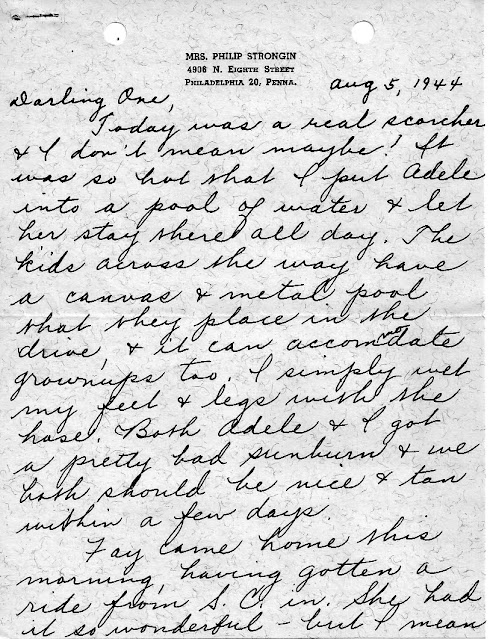 MRS. PHILIP STRONGIN
4906 N. EIGHTH STREET
PHILADELPHIA 20, PENNA.
Aug 5, 1944
Darling One,
Today was a real scorcher
& I don't mean maybe! It
was so hot that I put Adele
into a pool of water & let
her stay there all day. The
kids across the way have
a canvas & metal pool
that they place in the
drive, & it can accommodate
grownups too. I simply wet
my feet & legs with the
hose. Both Adele & I got
a pretty bad sunburn & we
both should be nice & tan
within a few days.
Fay came home this
morning, having gotten a
ride from S. C. in. She had
it so wonderful - but I mean